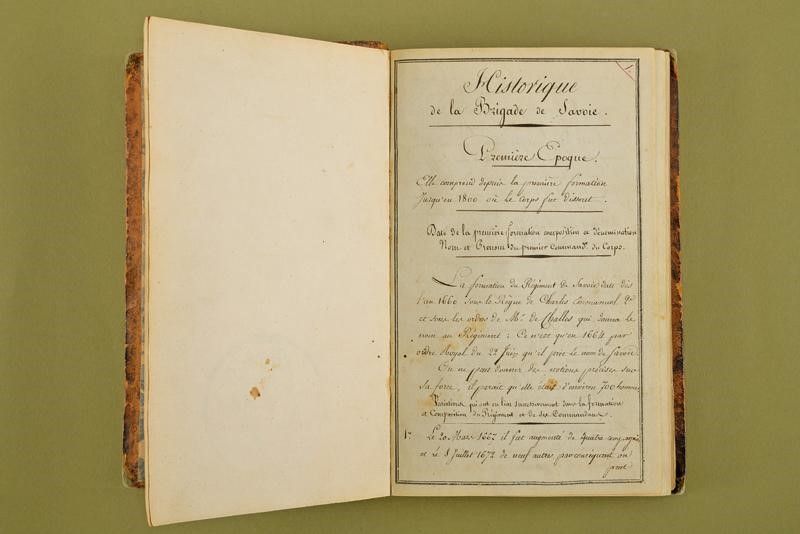 1
Historique
de la Brigade de Savoie.
Première Epoque.
Elle comprend depuis la première formation
jusqu'en 1800 où le Corps fut dissout.
Date de la première formation composition et dénomination
Nom et Prenom du premier Command.t du Corps.
La formation du Régiment de Savoie date dès
l'an 1660 sous le Règne de Charles Emmanuel 2.d
et sous les ordres de M.r de Challes qui donna le
nom au Régiment : Ce n'est qu'en 1664 par
ordre Royal du 22 Juin qu'il prit le nom de Savoie.
On ne peut donner des notions précises sur
sa force, il parait qu'elle était d'environ 700 hommes
Variations qui ont eu lieu successivement dans la formation
et Composition du Régiment et de ses Commandans.
1.° Le 20 Mars 1667 il fut augmenté de quatre compagnies
et le 8 Juillet 1672 de neuf autres, par conséquent on
peut